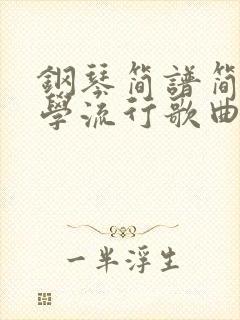 鋼琴简譜简
學流行歌曲
一半浮生